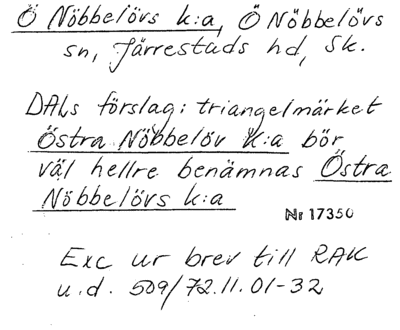 Ö Nöbbelövs k:a, Ö Nöbbelövs
sn, Järrestads hd, Sk.
DALs förslag: triangelmärket
Östra Nöbbelöv k:a bör
väl hellre benämnas Östra
Nöbbelövs k:a
Nr 17350
Exc ur brev till RAK
u.d. 509/72.11.01-32